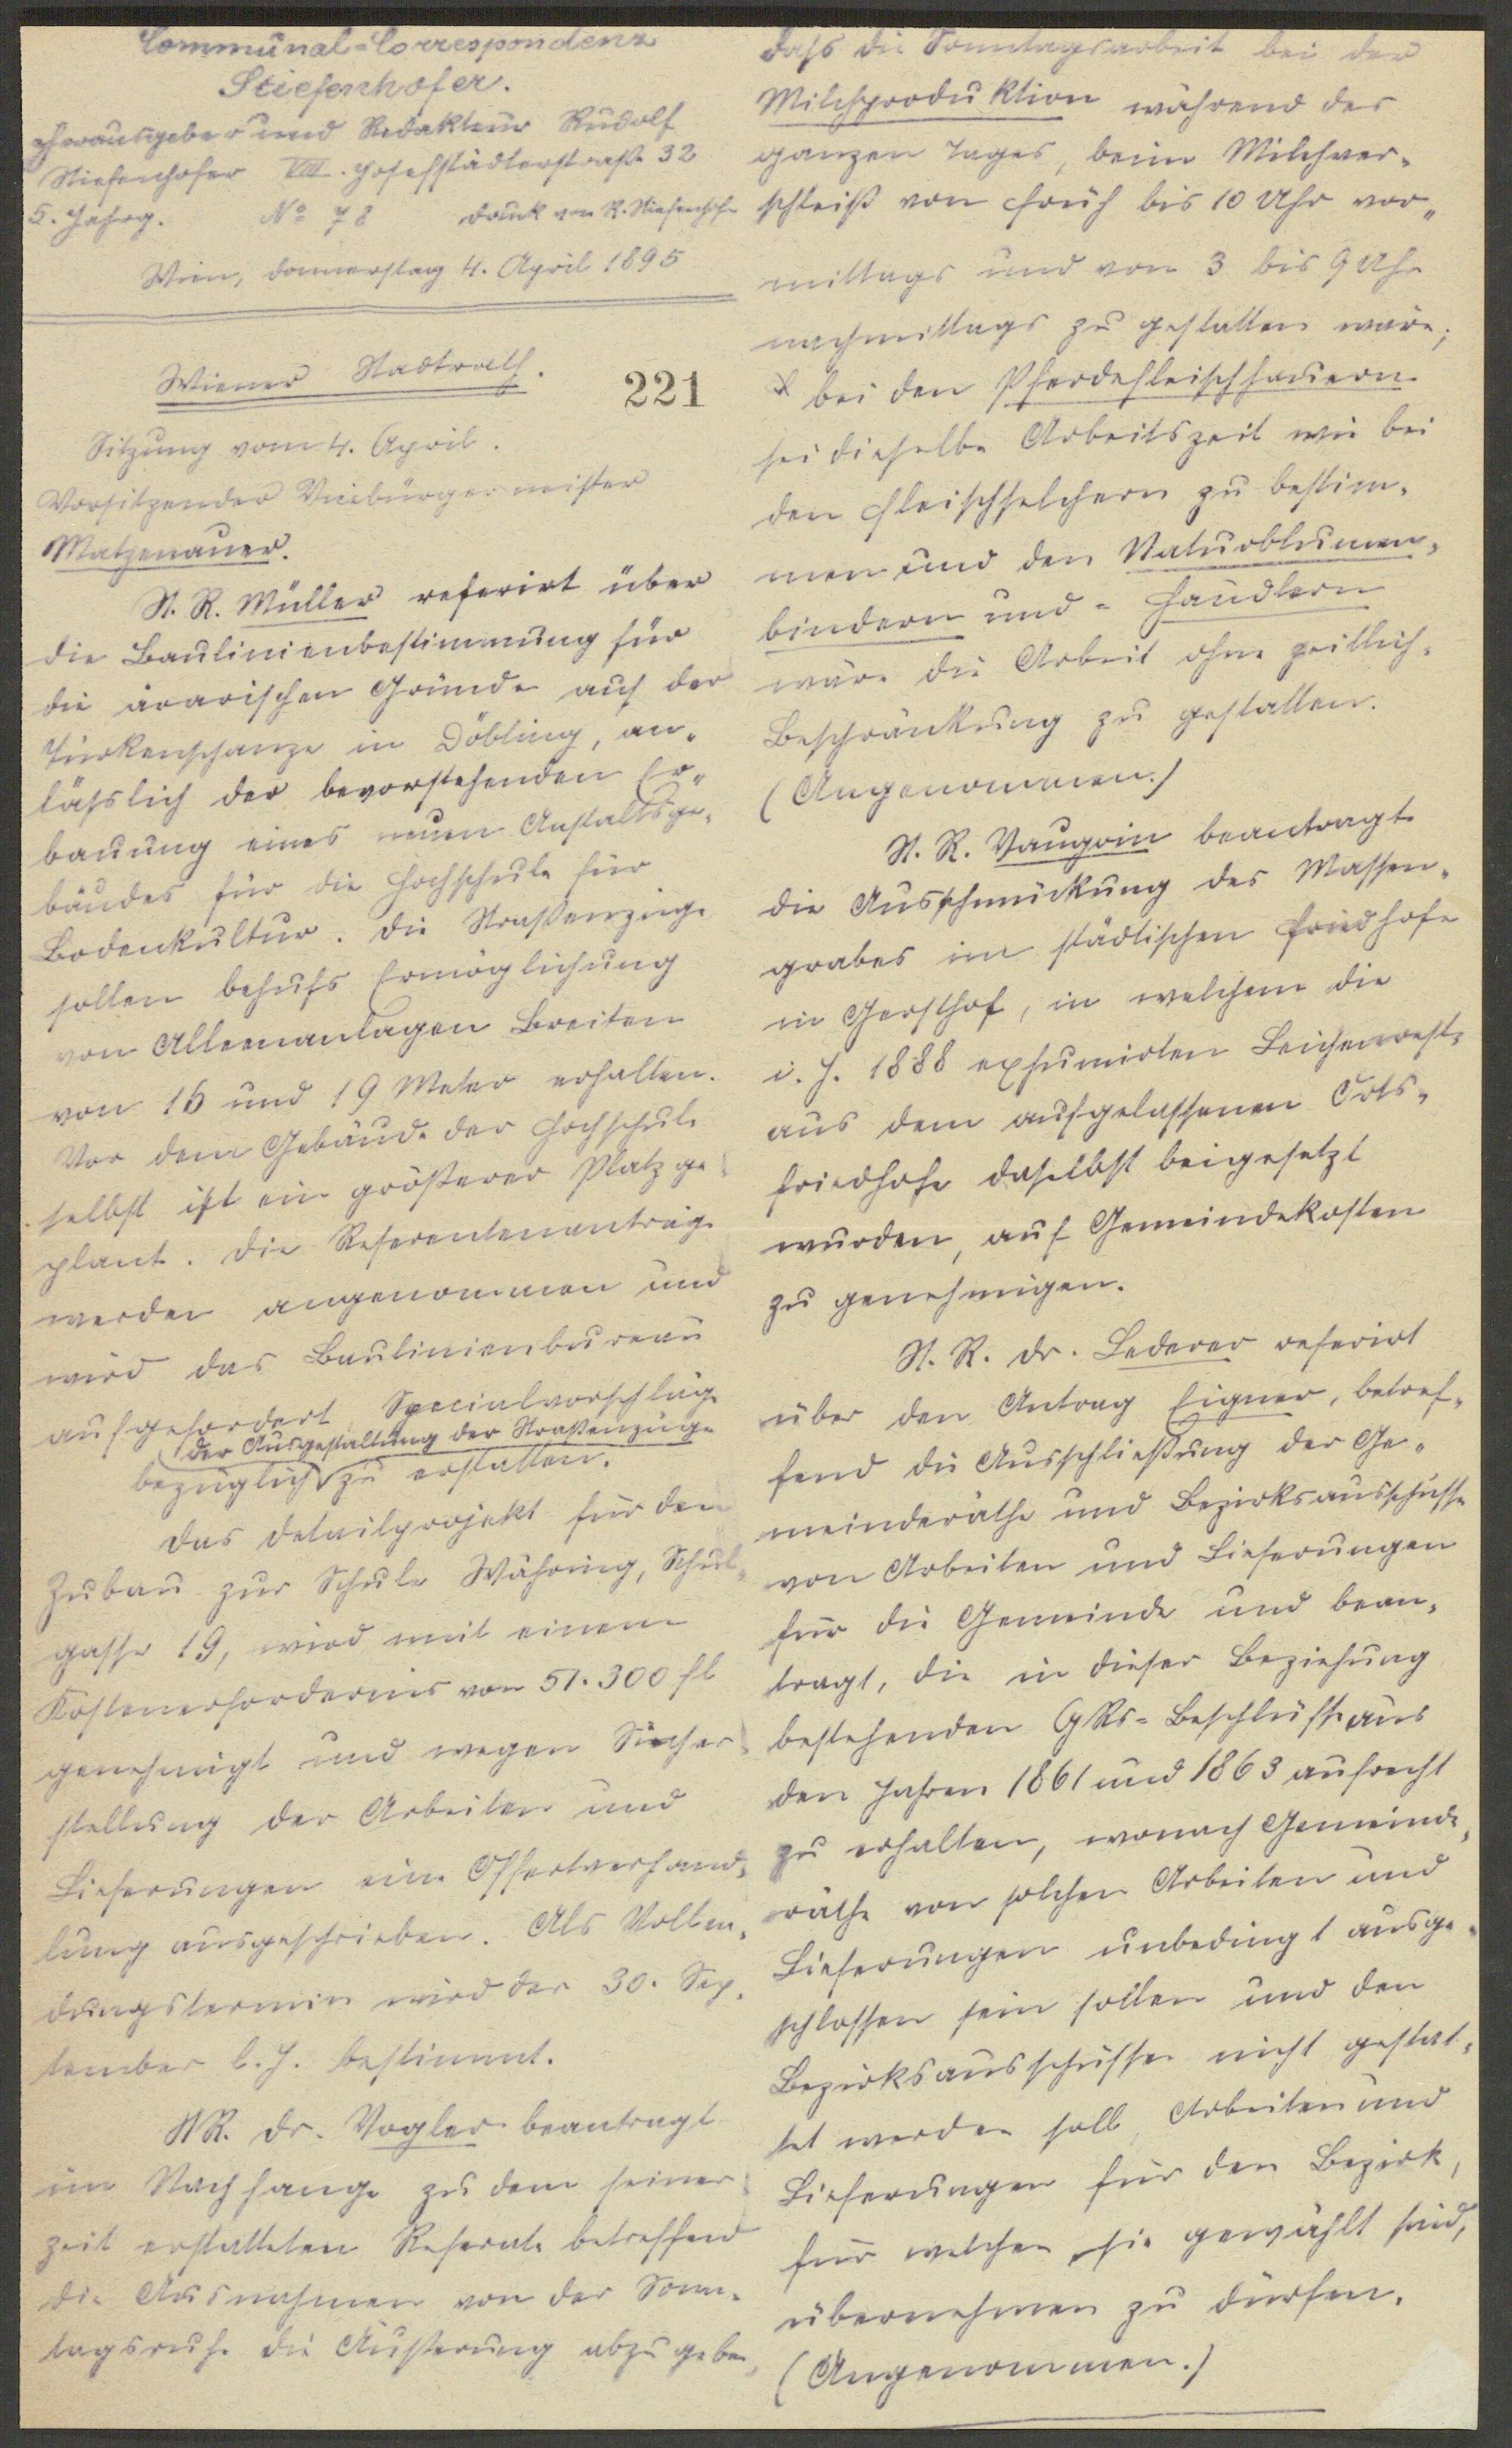 Communal-Correspondenz
Stiefenhofer.
Herausgeber und Redakteur Rudolf
Stiefenhofer VIII. Josefstädterstraße 32
5. Jahrg. No 78 Druck von R. Stiefenhofer
Wien, Donnerstag 4. April 1895
Wiener Stadtrath.
221
Sitzung vom 4. April.
Vorsitzender Vicebürgermeister
Matzenauer.
St. R. Müller referirt über
die Baulinienbestimmung für
die ärarischen Gründe auf der
Türkenschanze in Döbling, an-
läßlich der bevorstehenden Er-
bauung eines neuen Anstaltsge-
bäudes für die Hochschule für
Bodenkultur. Die Straßenzüge
sollen behufs Ermöglichung
von Alleeanlagen Breiten
von 16 und 19 Meter erhalten.
Vor dem Gebäude der Hochschule
selbst ist ein größerer Platz ge-
plant. Die Referentenanträge
werden angenommen und
wird das Baulinienbureau
aufgefordert Specialvorschläge
der Ausgestaltung der Straßenzüge
bezüglich zu erstatten.
Das Detailprojekt für den
Zubau zur Schule Währing, Schul-
gasse 19, wird mit einem
Kostenerfordernis von 51.300 fl
genehmigt und wegen Sicher-
stellung der Arbeiten und
Lieferungen eine Offertverhand-
lung ausgeschrieben. Als Vollen-
dungstermin wird der 30. Sep-
tember l. J. bestimmt.
StR. Dr. Vogler beantragt
im Nachhange zu dem seiner-
zeit erstatteten Referate betreffend
die Ausnahmen von der Sonn-
tagsruhe die Äußerung abzugeben,
daß die Sonntagsarbeit bei der
Milchproduktion während des
ganzen Tages, beim Milchver-
schleiß von früh bis 10 Uhr vor-
mittags und von 3 bis 9 Uhr
nachmittags zu gestatten wäre;
bei den Pferdefleischhauern
sei dieselbe Arbeitszeit wie bei
den Fleischselchern zu bestim-
men und den Naturblumen-
bindern und -Händlern
wäre die Arbeit ohne zeitliche
Beschränkung zu gestatten.
(Angenommen.)
St. R. Vaugoin beantragt
die Ausschmückung des Massen-
grabes im städtischen Friedhofe
in Gersthof, in welchem die
i. J. 1888 exhumirten Leichenreste
aus dem aufgelassenen Orts-
friedhofe daselbst beigesetzt
wurden, auf Gemeindekosten
zu genehmigen.
St. R. Dr. Lederer referirt
über den Antrag Eigner, betref-
fend die Ausschließung der Ge-
meinderäthe und Bezirksausschüsse
von Arbeiten und Lieferungen
für die Gemeinde und bean-
tragt, die in dieser Beziehung
bestehenden GRs-Beschlüsse aus
den Jahren 1861 und 1863 aufrecht
zu erhalten, wonach Gemeinde-
räthe von solchen Arbeiten und
Lieferungen unbedingt ausge-
schlossen sein sollen und den
Bezirksausschüssen nicht gestat-
tet werden soll, Arbeiten und
Lieferungen für den Bezirk,
für welchen sie gewählt sind,
übernehmen zu dürfen.
(Angenommen.)